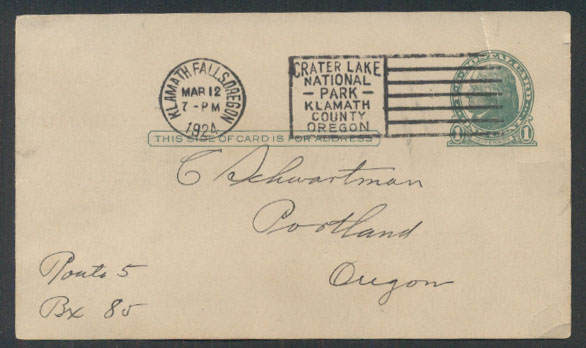 KLAMATH FALLS, OREGON
MAR 12
7 - PM
1924
CRATER LAKE
NATIONAL
- PARK -
KLAMATH
COUNTY
OREGON
1 1
THIS SIDE OF CARD IS FOR ADDRESS
C Schwartman
Portland
Oregon
Route 5
Bx 85